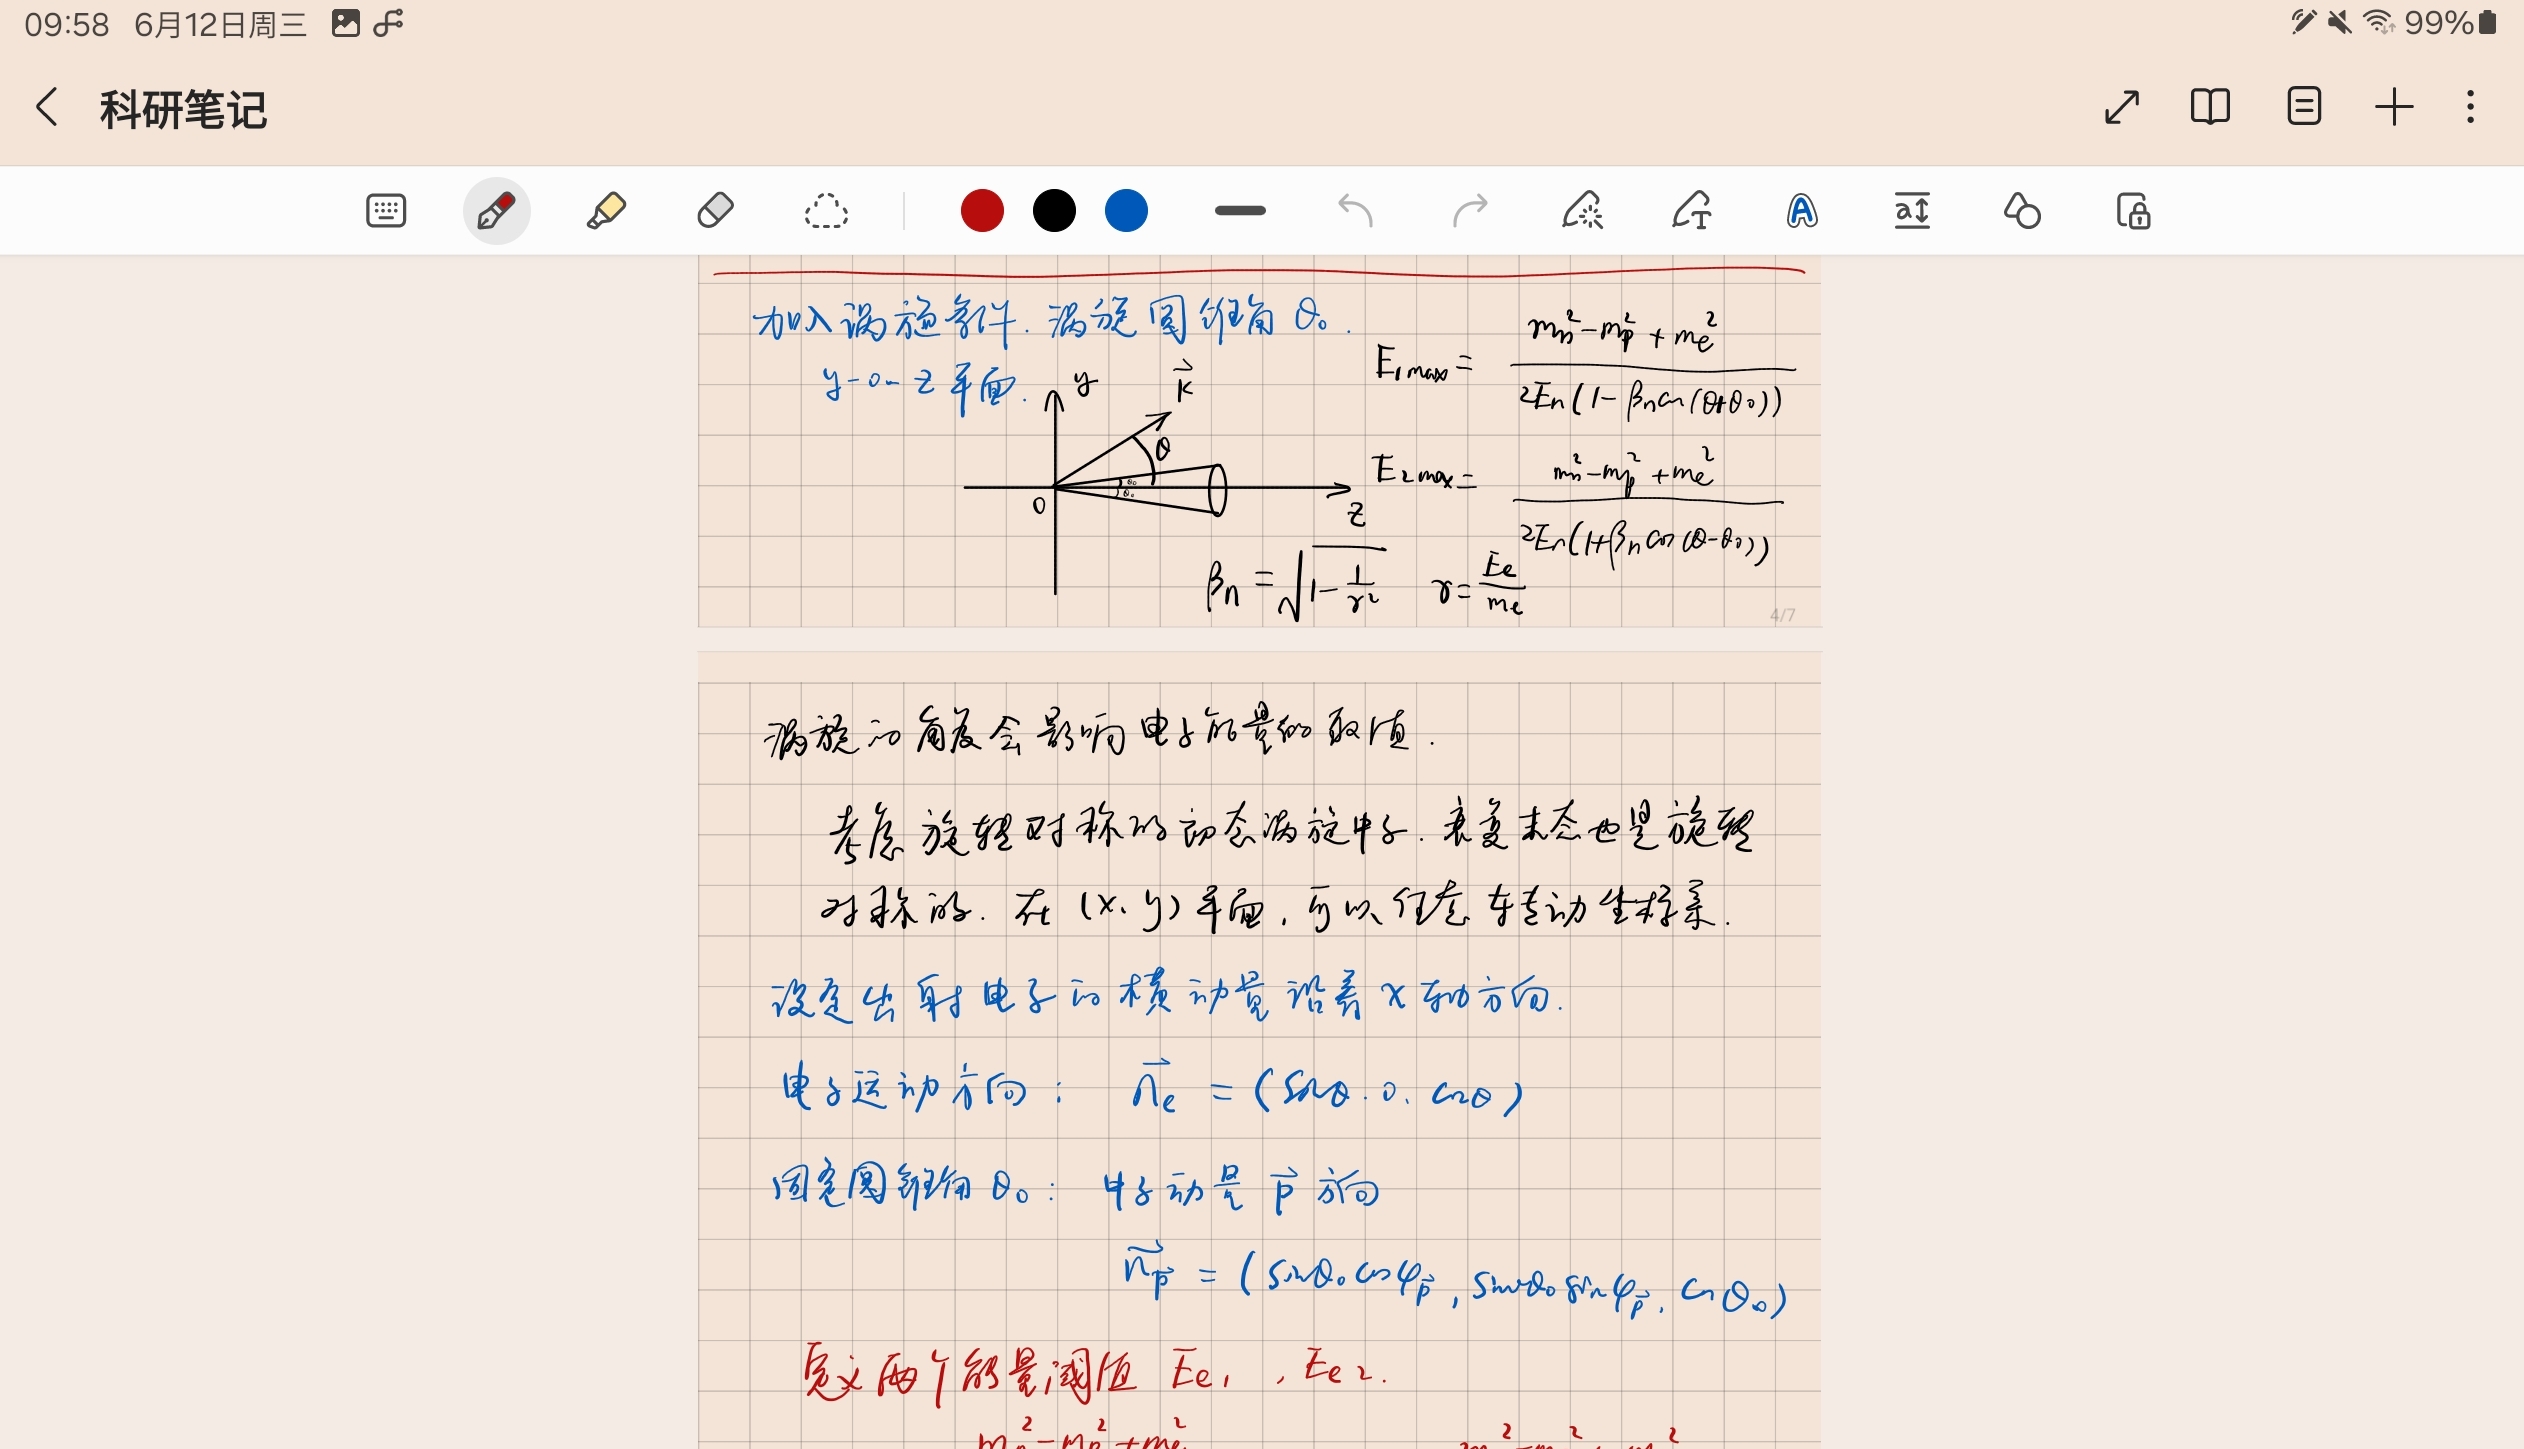 09:58 6月12日周三 99%
科研笔记
加入涡旋条件. 涡旋圆锥角 θ₀.
y-o-z 平面.
y
k⃗
θ
θ₀
θ₀
O
z
E₁max = (mn² - mp² + me²) / (2En(1 - βn cos(θ+θ₀)))
E₂max = (mn² - mp² + me²) / (2En(1 + βn cos(θ-θ₀)))
βn = √(1 - 1/γ²) γ = Ee/me
4/7
涡旋的角度会影响电子能量的取值.
考虑旋转对称的初态涡旋中子. 衰变末态也是旋转
对称的. 在 (x、y) 平面, 可以任意转动坐标系.
设定出射电子的横动量沿着 x 轴方向.
电子运动方向: n⃗e = (sinθ. 0. cosθ)
固定圆锥角 θ₀: 中子动量 p⃗ 方向
n⃗p⃗ = (sinθ₀ cosφp⃗, sinθ₀ sinφp⃗, cosθ₀)
定义两个能量阈值 Ee₁, Ee₂.